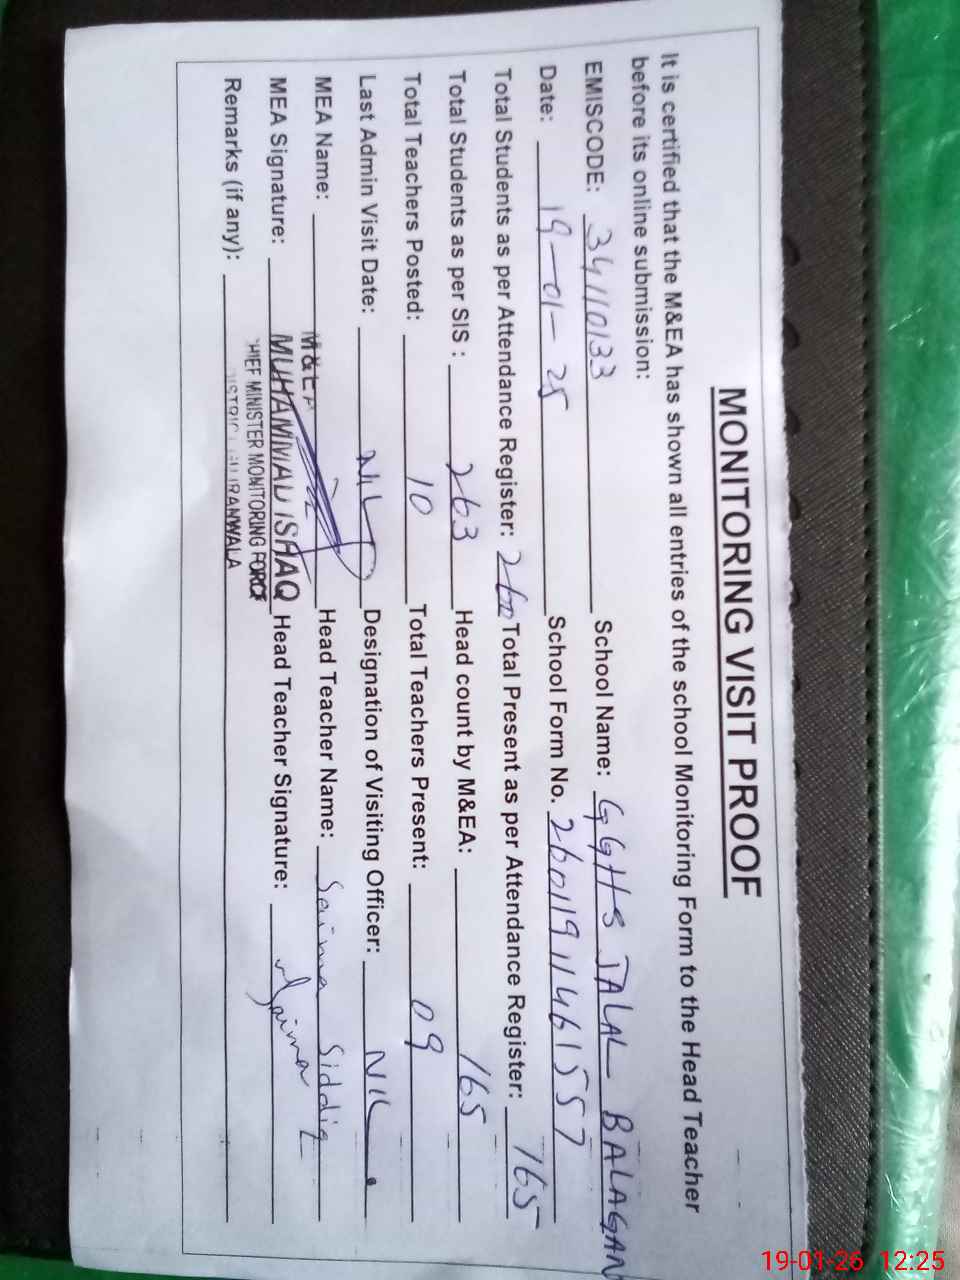 MONITORING VISIT PROOF
It is certified that the M&EA has shown all entries of the school Monitoring Form to the Head Teacher
before its online submission:
EMISCODE: 34110133 School Name: GGHS JALAL BALAGAN
Date: 19-01-25 School Form No. 2601191146157
Total Students as per Attendance Register: 260 Total Present as per Attendance Register: 165
Total Students as per SIS : 263 Head count by M&EA: 165
Total Teachers Posted: 10 Total Teachers Present: 09
Last Admin Visit Date: NIL Designation of Visiting Officer: NIL
MEA Name: Head Teacher Name: Saima Siddiq
M&EA
MEA Signature: MUHAMMAD ISHAQ Head Teacher Signature: Saima
CHIEF MINISTER MONITORING FORCE
Remarks (if any): DISTRICT GUJRANWALA
19-01-26 12:25